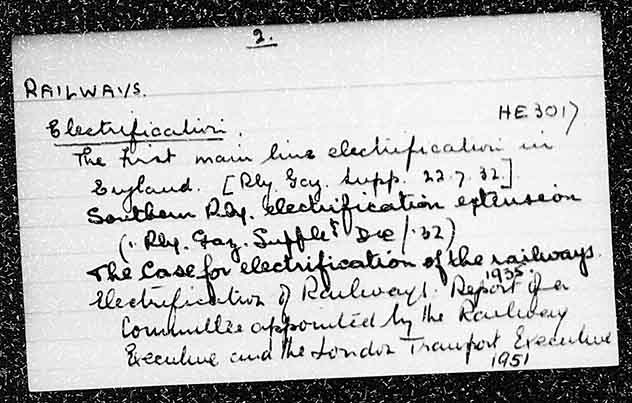 2.
RAILWAYS.
HE 3017
Electrification.
The first main line electrification in
England. [Rly. Gaz. Supp. 22.7.32].
Southern Rly. electrification extension
(" Rly. Gaz. Supplet Dec 1.32)
The Case for electrification of the railways.
1935.
Electrification of Railways. Report of a
Committee appointed by the Railway
Executive and the London Transport Executive
1951